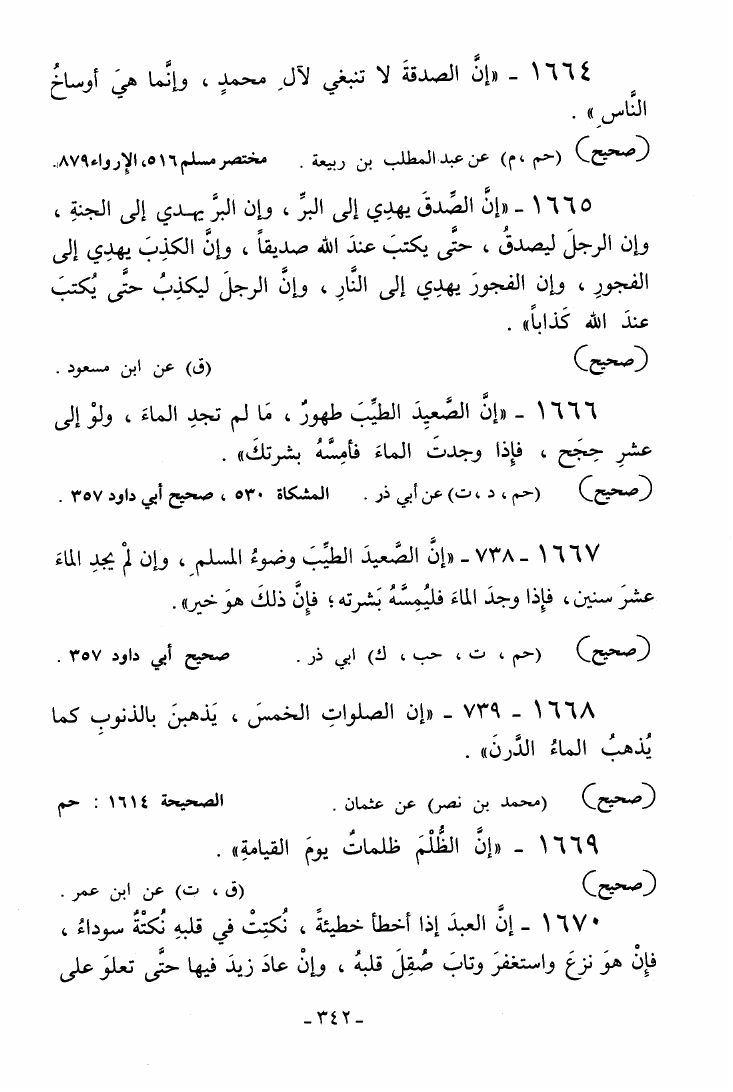 ١٦٦٤ - «إنَّ الصدقةَ لا تنبغي لآلِ محمدٍ ، وإنَّما هيَ أوساخُ
النَّاسِ» .
(صحيح) (حم ،م) عن عبد المطلب بن ربيعة . مختصر مسلم ٥١٦، الإرواء ٨٧٩.
١٦٦٥ - «إنَّ الصِّدقَ يهدِي إلى البرِّ ، وإن البرَّ يهـدي إلى الجنةِ ،
وإن الرجلَ ليصدقُ ، حتَّى يكتبَ عندَ الله صديقاً ، وإنَّ الكذِبَ يهدِي إلى
الفجورِ ، وإن الفجورَ يهدِي إلى النَّارِ ، وإنَّ الرجلَ ليكذِبُ حتَّى يُكتبَ
عندَ الله كَذاباً» .
(صحيح) (ق) عن ابن مسعود .
١٦٦٦ - «إنَّ الصَّعيِدَ الطيِّبَ طهورٌ ، مَا لم تجدِ الماءَ ، ولوْ إلى
عشرِ حِجَجٍ ، فإذا وجدتَ الماءَ فأمِسَّهُ بشرتكَ» .
(صحيح) (حم ، د ،ت) عن أبي ذر . المشكاة ٥٣٠ ، صحيح أبي داود ٣٥٧ .
١٦٦٧ - ٧٣٨ - «إنَّ الصَّعيدَ الطيِّبَ وضوءُ المسلمِ ، وإن لمْ يجدِ الماءَ
عشرَ سنين، فإذا وجدَ الماءَ فليُمِسَّهُ بَشرته؛ فإنَّ ذلكَ هوَ خير».
(صحيح) (حم ، ت ، حب ، ك) ابي ذر . صحيح أبي داود ٣٥٧ .
١٦٦٨ - ٧٣٩ - «إن الصلواتِ الخمسَ ، يَذهبنَ بالذنوبِ كما
يُذهبُ الماءُ الدَّرنَ» .
(صحيح) (محمد بن نصر) عن عثمان . الصحيحة ١٦١٤ : حم
١٦٦٩ - «إنَّ الظُّلْمَ ظلماتٌ يومَ القيامةِ» .
(صحيح) (ق ، ت) عن ابن عمر .
١٦٧٠ - إنَّ العبدَ إذا أخطأ خطيئةً ، نُكتِتْ في قلبهِ نُكتْةٌ سوداءُ ،
فإنْ هوَ نزعَ واستغفرَ وتابَ صُقِلَ قلبهُ ، وإنْ عادَ زيدَ فيها حتَّى تعلوَ على
- ٣٤٢ -